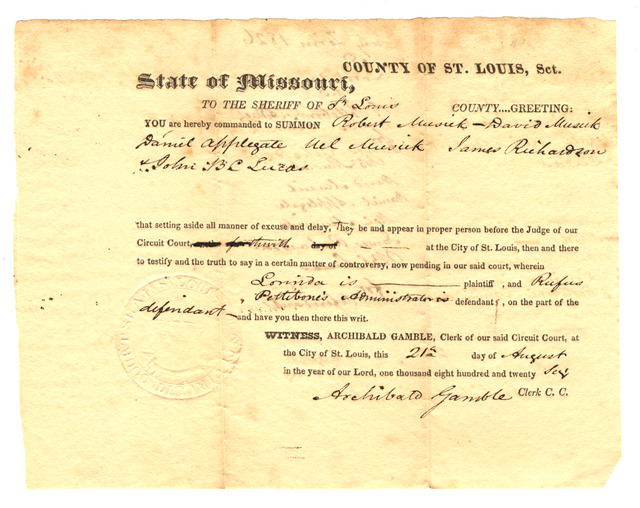 COUNTY OF ST. LOUIS, Sct.
State of Missouri,
TO THE SHERIFF OF St Louis COUNTY....GREETING:
YOU are hereby commanded to SUMMON Robert Musick – David Musick
Daniel Applegate Uel Musick James Richardson
& John B C Lucas
that setting aside all manner of excuse and delay, They be and appear in proper person before the Judge of our
Circuit Court, on the forthwith day of at the City of St. Louis, then and there
to testify and the truth to say in a certain matter of controversy, now pending in our said court, wherein
Lorinda is plaintiff , and Rufus
Pettibone's Administrator is defendant , on the part of the
defendant – and have you then there this writ.
WITNESS, ARCHIBALD GAMBLE, Clerk of our said Circuit Court, at
the City of St. Louis, this 21st day of August
in the year of our Lord, one thousand eight hundred and twenty Six
Archibald Gamble Clerk C. C.